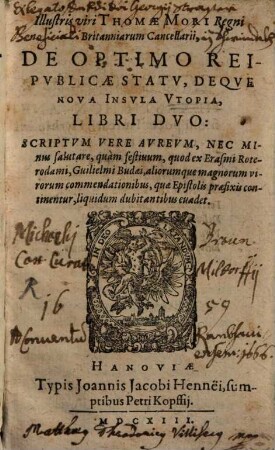 Illustris viri THOMÆ MORI Regni
Britanniarum Cancellarii,
DE OPTIMO REI-
PVBLICÆ STATV, DEQVE
NOVA INSVLA VTOPIA,
LIBRI DVO:
SCRIPTVM VERE AVREVM, NEC MI-
nus salutare, quàm festiuum, quod ex Erasmi Rote-
rodami, Guilielmi Budæi, aliorumque magnorum vi-
rorum commendationibus, quæ Epistolis præfixis con-
tinentur, liquidum dubitantibus euadet.
R
16
59
Conventus
1666.
HANOVIÆ
Typis Joannis Jacobi Hennëi, sum-
ptibus Petri Kopffij.
M DC XIII.